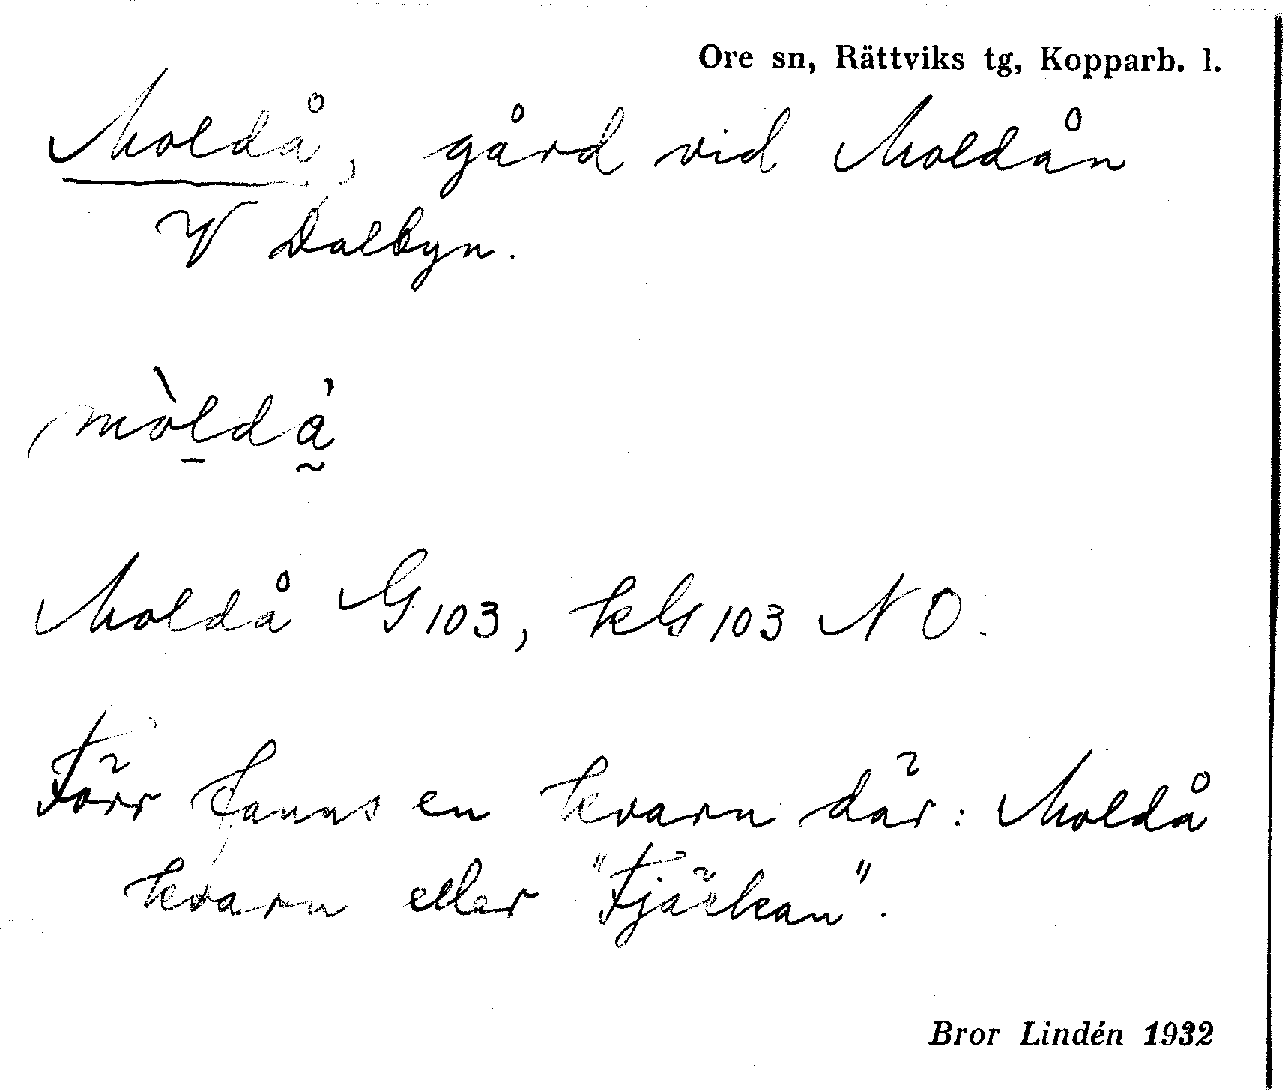 Ore sn, Rättviks tg, Kopparb. l.
Moldå, gård vid Moldån
V Dalbyn.
mòldå̀
Moldå G 103, kG 103 NO.
Förr fanns en kvarn där: Moldå
kvarn eller "Fjäckan".
Bror Lindén 1932